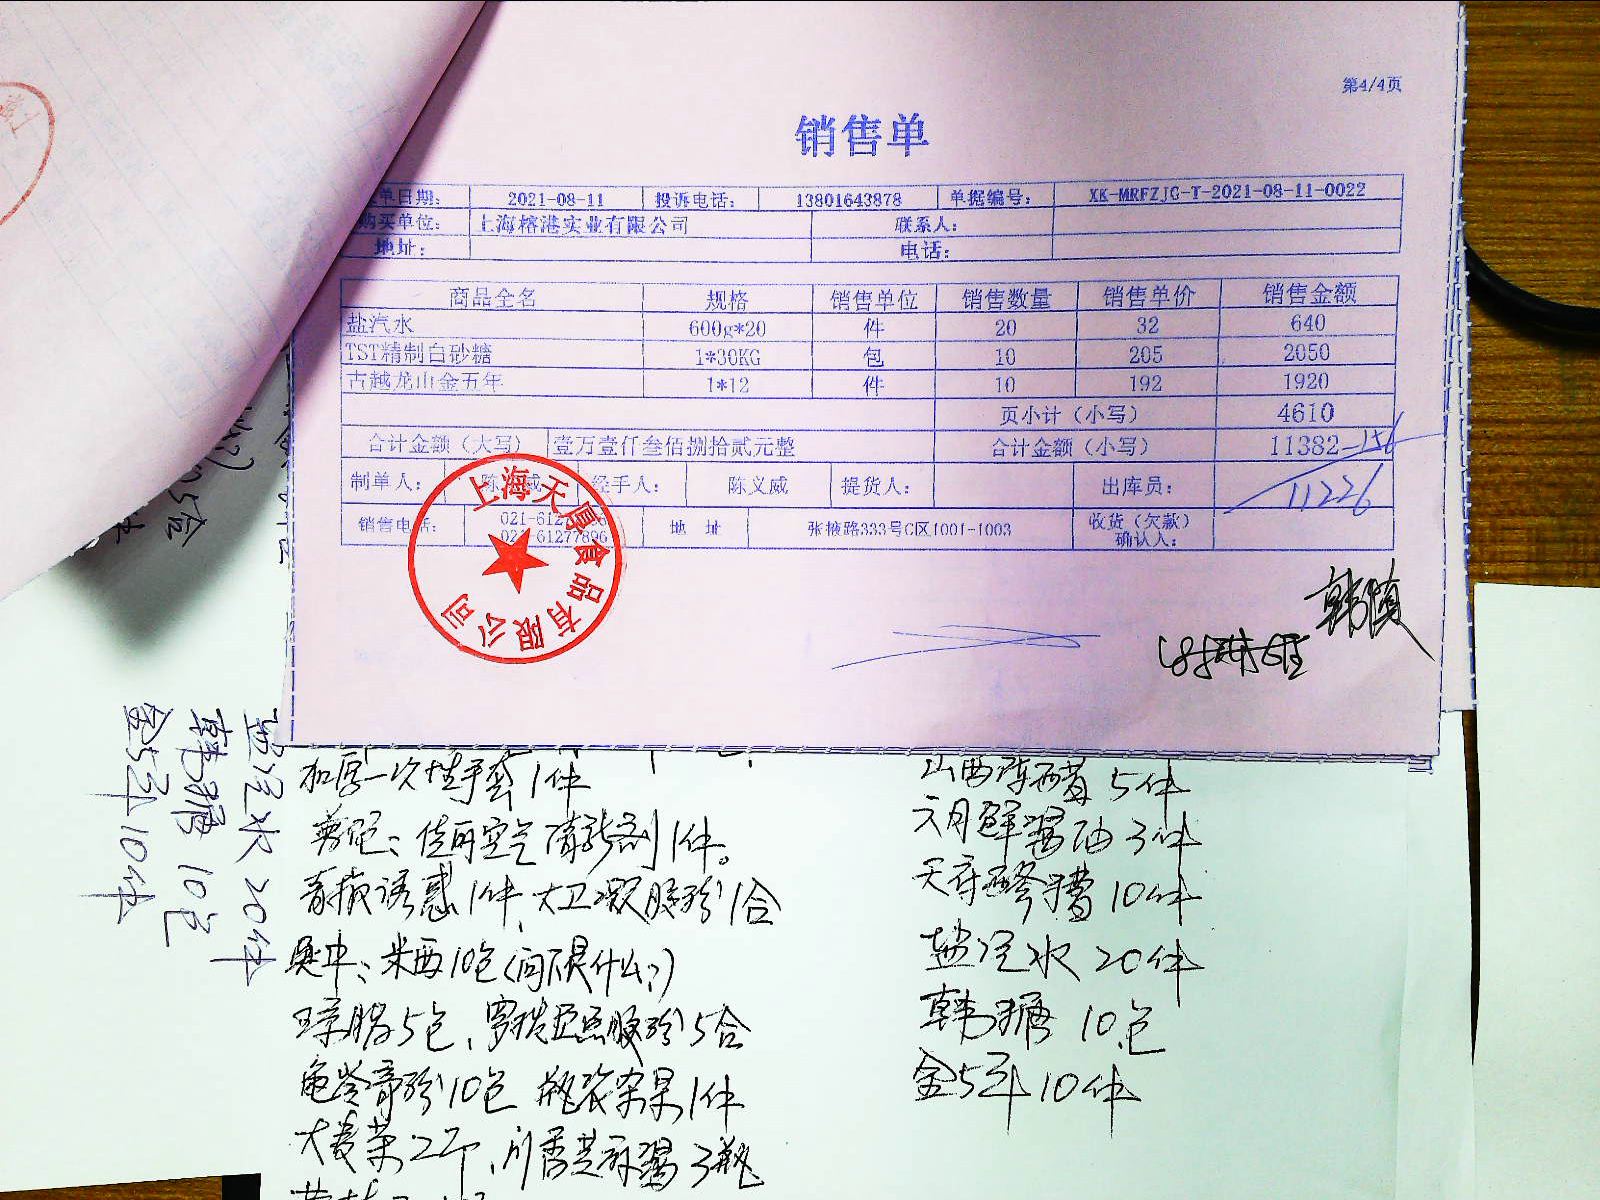 第4/4页
销售单
单日期： 2021-08-11 投诉电话： 13801643878 单据编号： XK-MRFZJG-T-2021-08-11-0022
购买单位： 上海榕港实业有限公司 联系人：
地址： 电话：
商品全名 规格 销售单位 销售数量 销售单价 销售金额
盐汽水 600g*20 件 20 32 640
TST精制白砂糖 1*30KG 包 10 205 2050
古越龙山金五年 1*12 件 10 192 1920
页小计（小写） 4610
合计金额（大写） 壹万壹仟叁佰捌拾贰元整 合计金额（小写） 11382-156
11226
制单人： 陈 威 经手人： 陈义威 提货人： 出库员：
销售电话： 021-61277896 地 址 张掖路333号C区1001-1003 收货（欠款）
确认人：
上海天厚食品有限公司
韩慎
加厚一次性手套1件
佳丽空气清新剂1件。
1件、大卫凝胶粉1合
米西10包（问下是什么？）
琼脂5包、 5合
龟苓膏粉10包 瓶装杂果1件
芝麻酱3瓶
山西陈醋5件
六月鲜酱油3件
10件
盐汽水 20件
韩糖 10包
金5年10件
盐汽水 20件
韩糖 10包
金5年10件